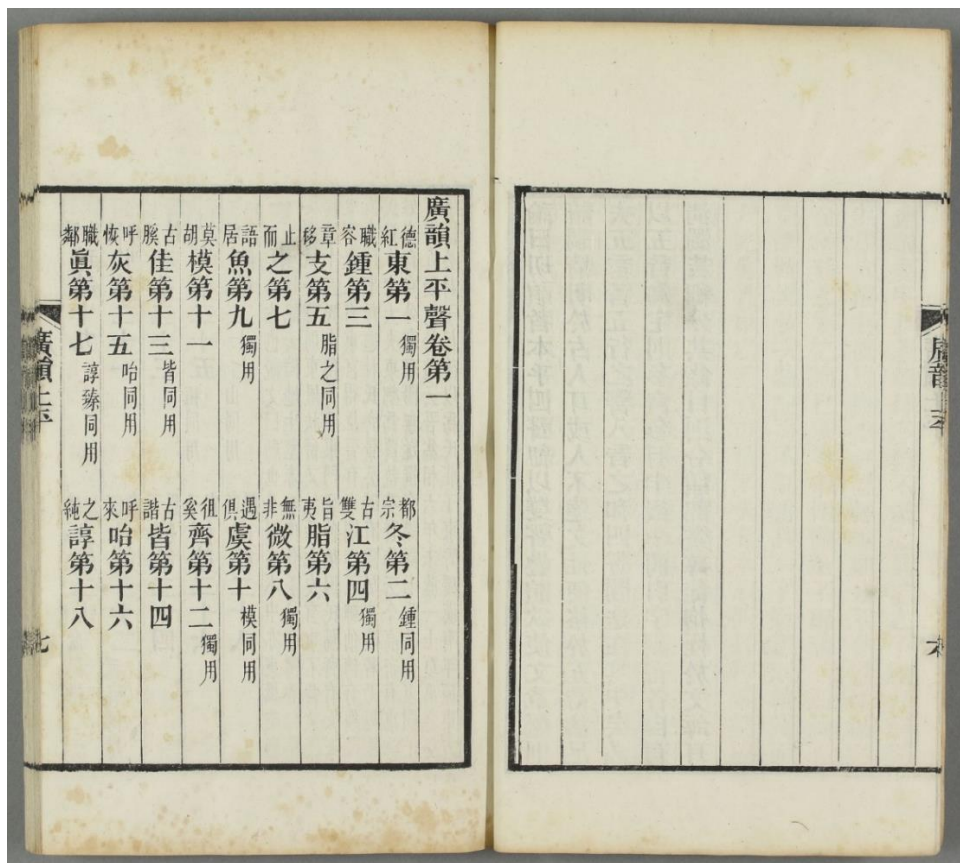 廣韻上平聲卷第一
德紅東第一獨用 都宗冬第二鍾同用
職容鍾第三 古雙江第四獨用
章移支第五脂之同用 旨夷脂第六
止而之第七 無非微第八獨用
語居魚第九獨用 遇俱虞第十模同用
莫胡模第十一 徂奚齊第十二獨用
古膎佳第十三皆同用 古諧皆第十四
呼恢灰第十五咍同用 呼來咍第十六
職鄰眞第十七諄臻同用 之純諄第十八
廣韻上平
七